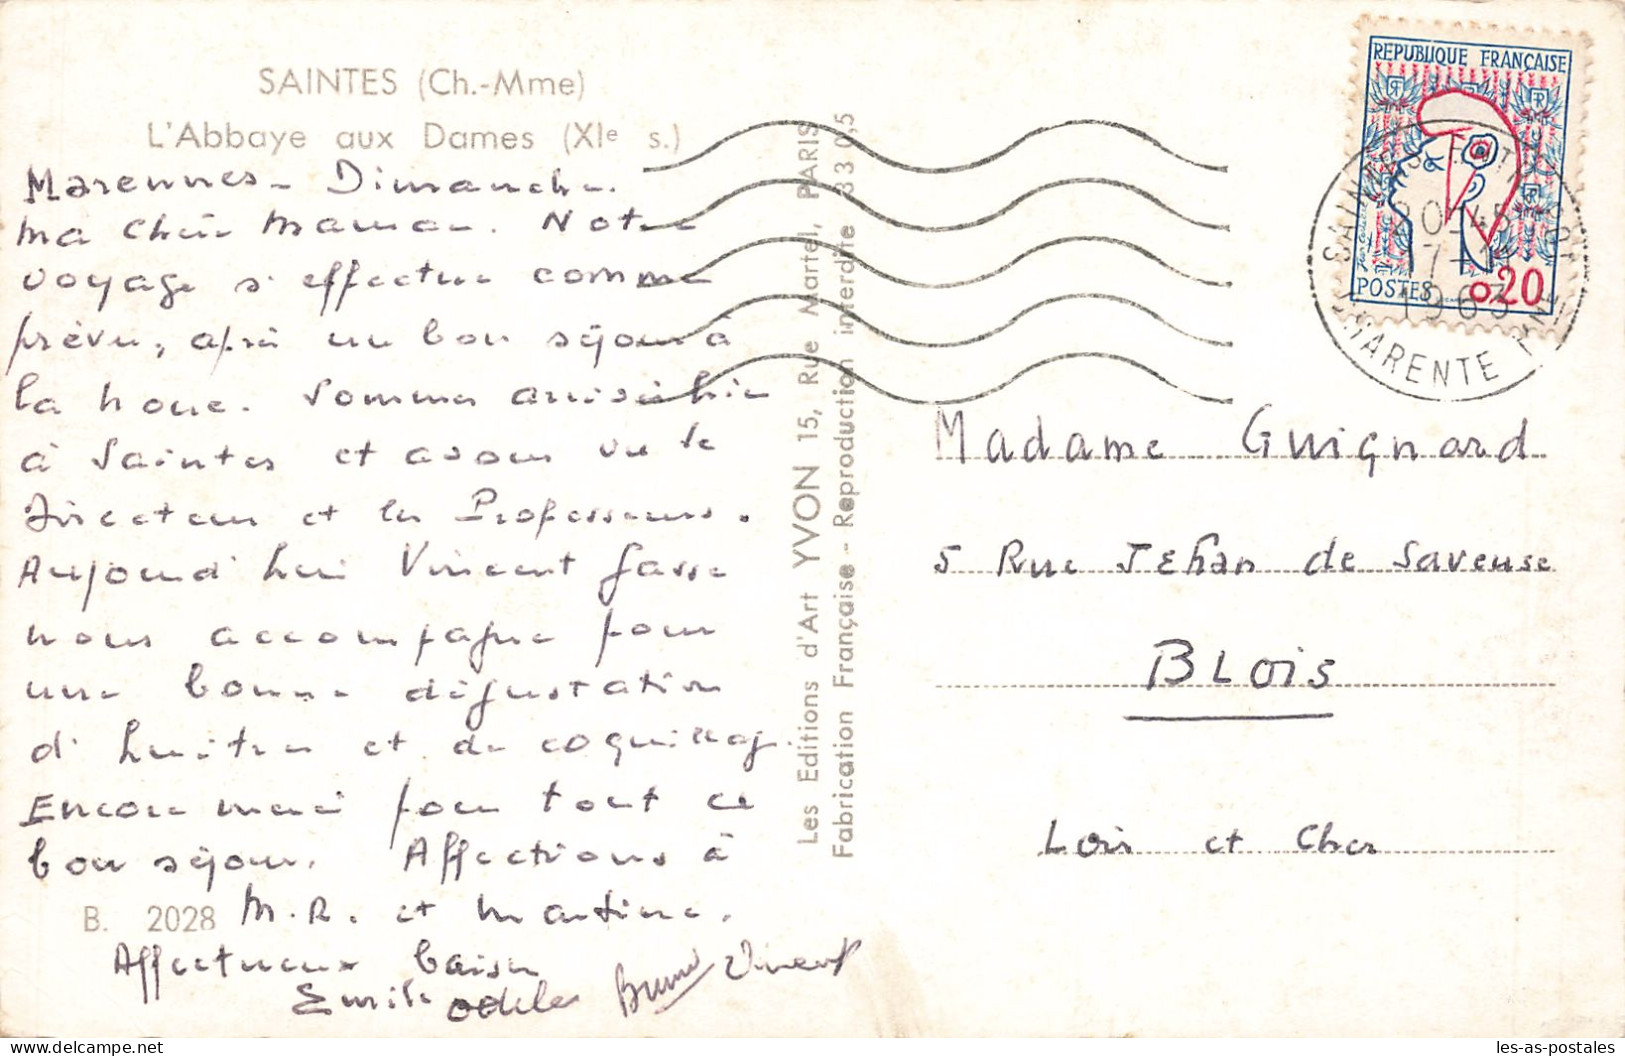 SAINTES (Ch.-Mme)
L'Abbaye aux Dames (XIe s.)
Marennes - Dimanche.
Ma chère Maman. Notre
voyage s'effectue comme
prévu, après un bon séjour à
la noue. Sommes arrivés hier
à Saintes et avons vu le
Directeur et les Professeurs.
Aujourd'hui Vincent
nous accompagne pour
une bonne dégustation
d'huitres et de coquillages.
Encore merci pour tout ce
bon séjour. Affections à
M.R. et Martine.
Affectueux baiser
Emile Odile Bruno Vincent
B. 2028
Les Editions d'Art YVON 15, Rue Martel, PARIS
Fabrication Française - Reproduction interdite 33 0,5
REPUBLIQUE FRANÇAISE
POSTES 0,20
20-45
7-
1963
CHARENTE MME
Madame Guignard
5 Rue Jehan de Saveuse
BLOIS
Loir et Cher
les-as-postales
Delcampe.net